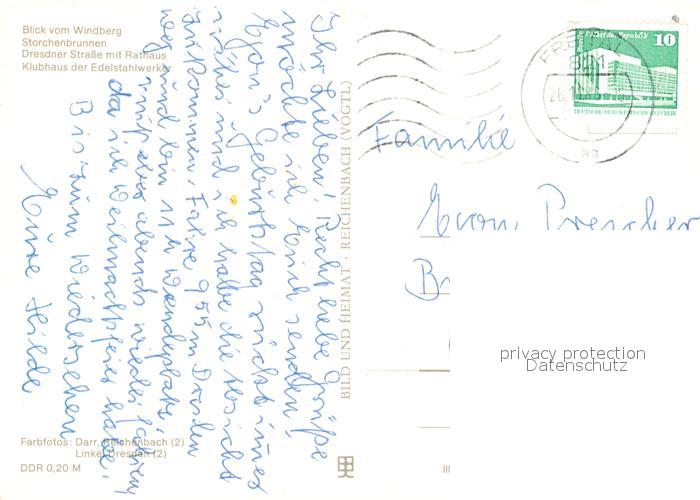 Blick vom Windberg
Storchenbrunnen
Dresdner Straße mit Rathaus
Klubhaus der Edelstahlwerker
Ihr Lieben! Recht liebe Grüße
möchte ich Euch senden!
Geburtstag rückt immer
näher und ich habe die Absicht
zukommen. Fahre 9 55 in Dresden
weg und bin 11 h Wendeplatz!
muß aber abends wieder fahren,
da ich Weihnachtsfeier habe.
Bis zum Wiedersehen
Eure Hilde
Farbfotos: Darr, Reichenbach (2)
Linke, Dresden (2)
DDR 0,20 M
BILD UND HEIMAT · REICHENBACH (VOGTL)
III
Berlin Palast der Republik
10
DEUTSCHE DEMOKRATISCHE REPUBLIK
FREITAL
ag
Familie
Prescher
privacy protection
Datenschutz